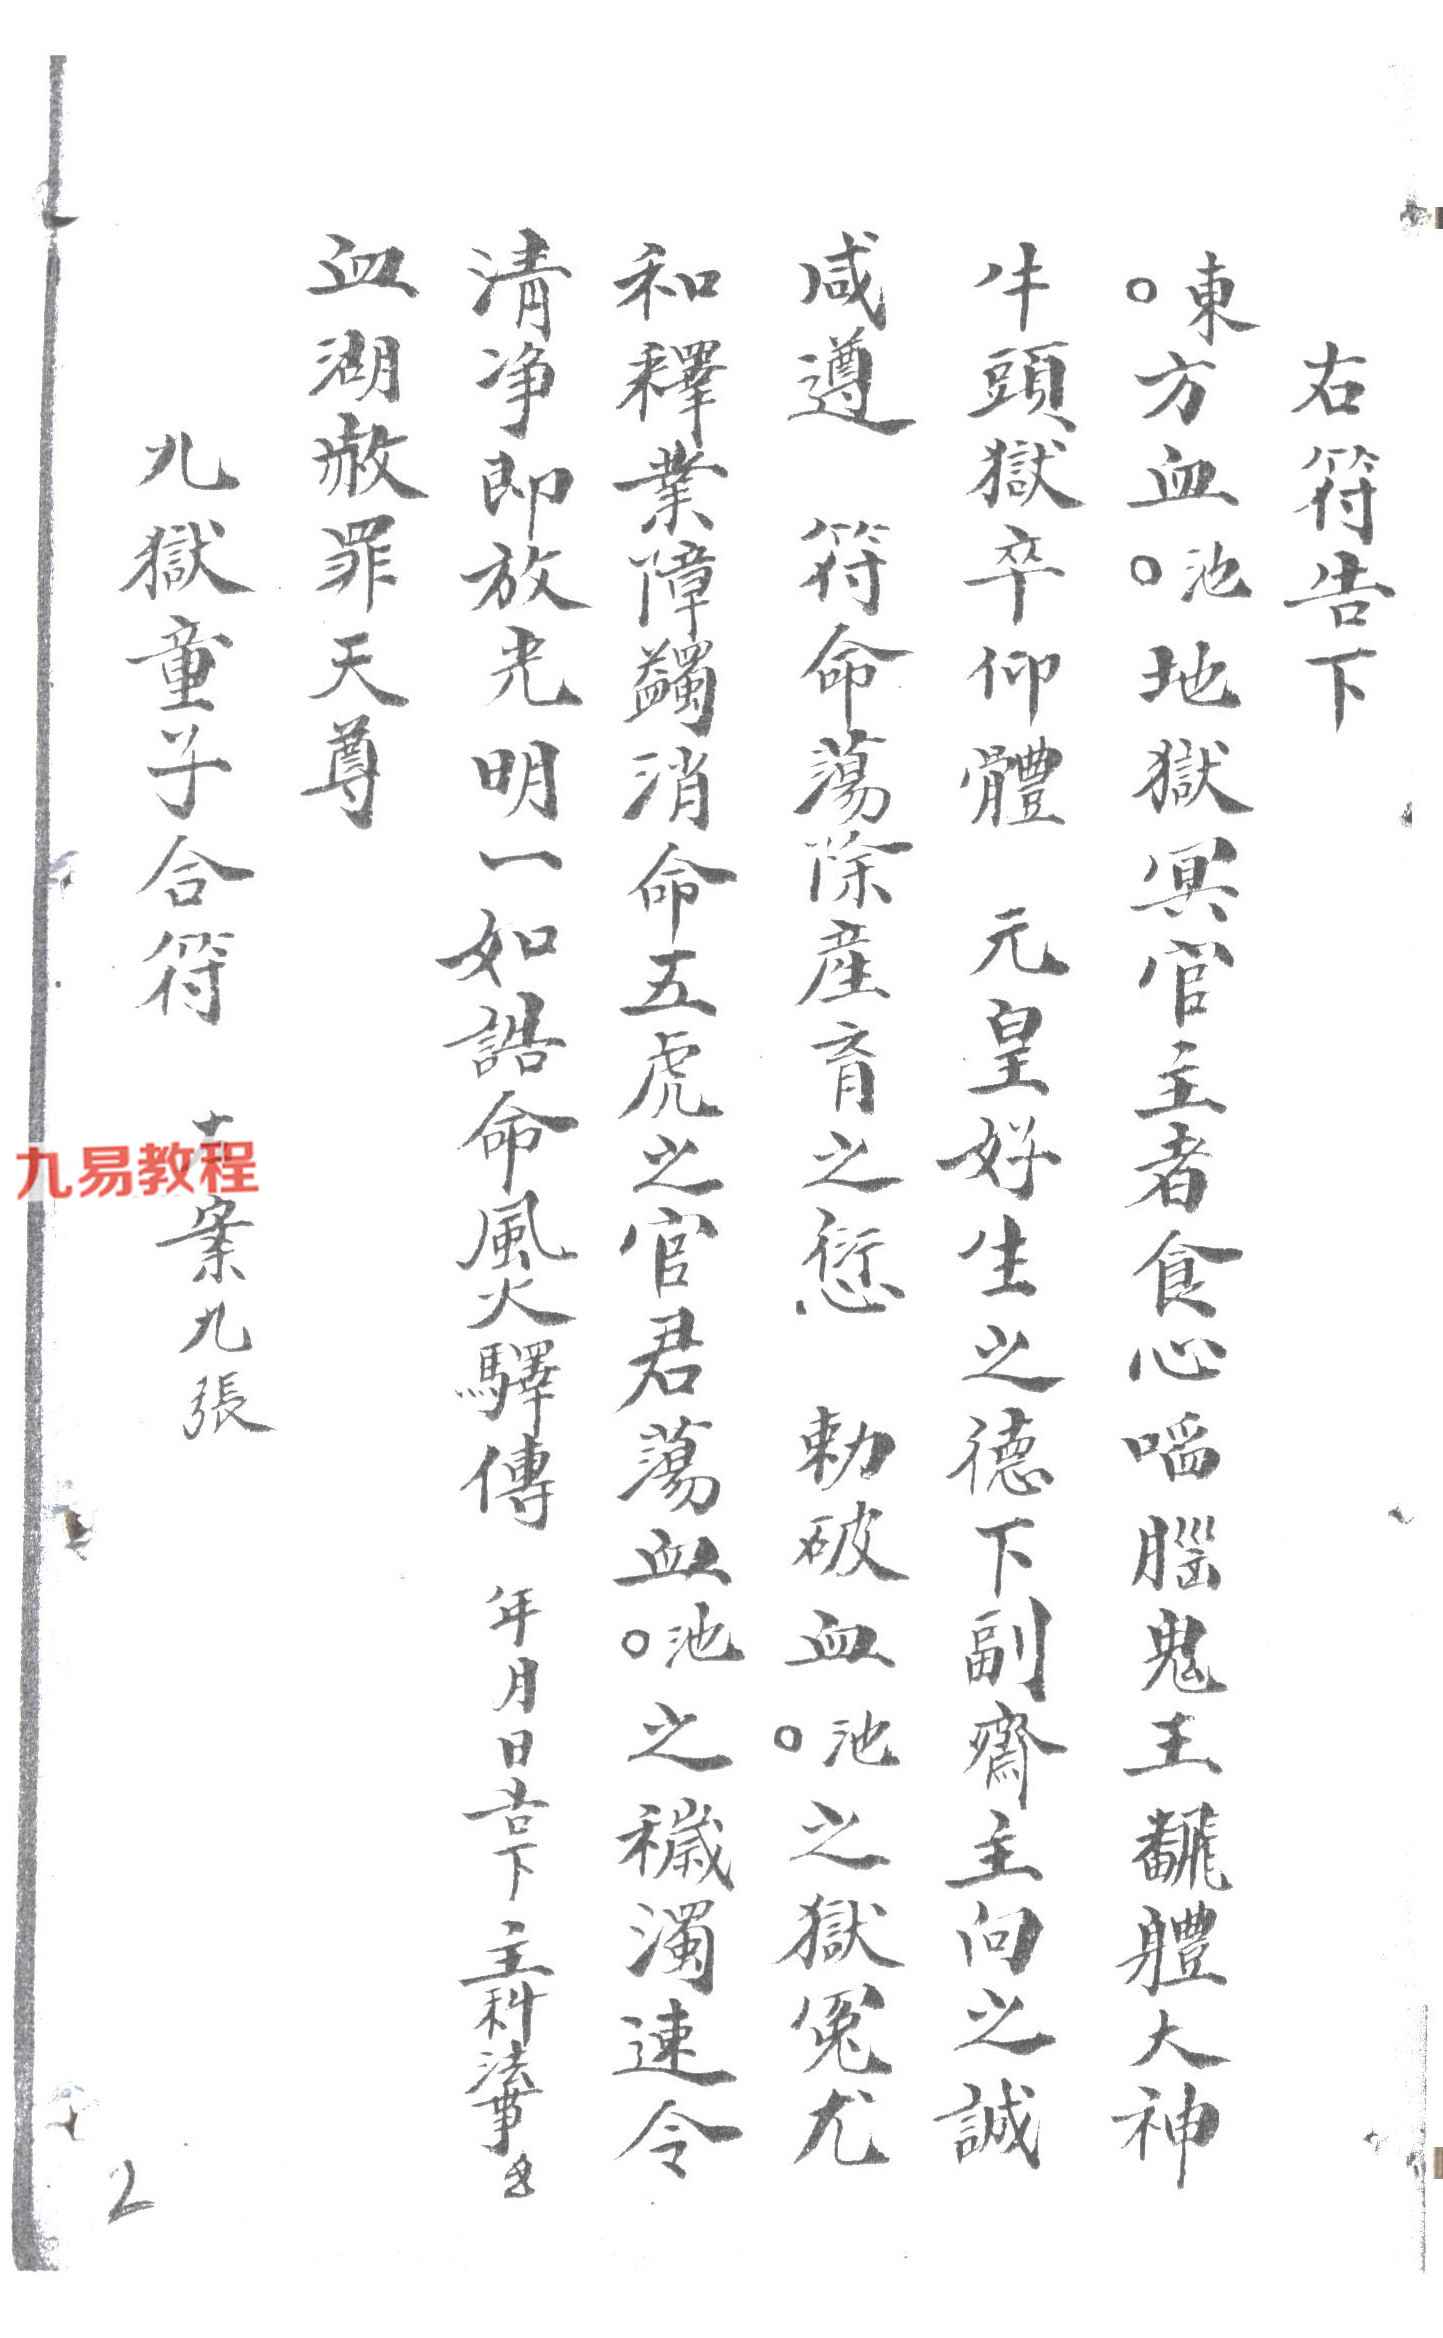 右符告下
○東方血○池地獄冥官主者食心啗腦鬼王飜軆大神
牛頭獄卒仰體 元皇好生之德下副齋主向之誠
咸遵 符命蕩除産育之愆 勅破血○池之獄冤尤
和釋業障蠲消命五虎之官君蕩血○池之穢濁速令
清净即放光明一如誥命風火驛傳 年月日告下 主科法事
血湖赦罪天尊
九獄童子合符 案九張
九易教程
2